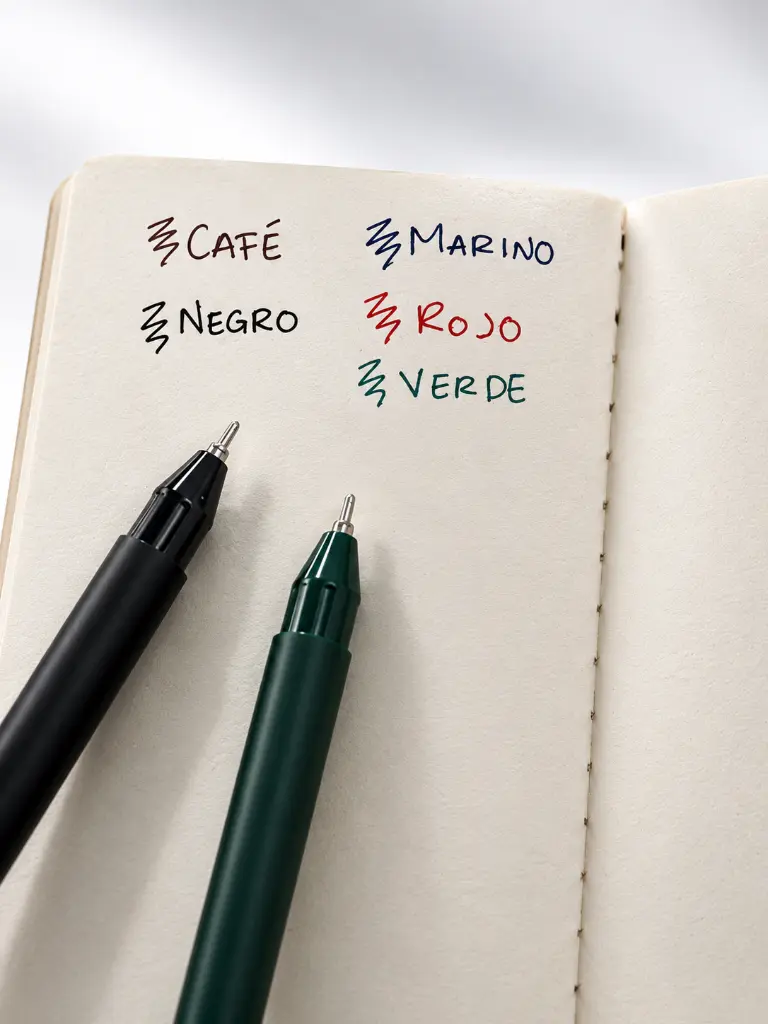 CAFÉ
NEGRO
MARINO
ROJO
VERDE